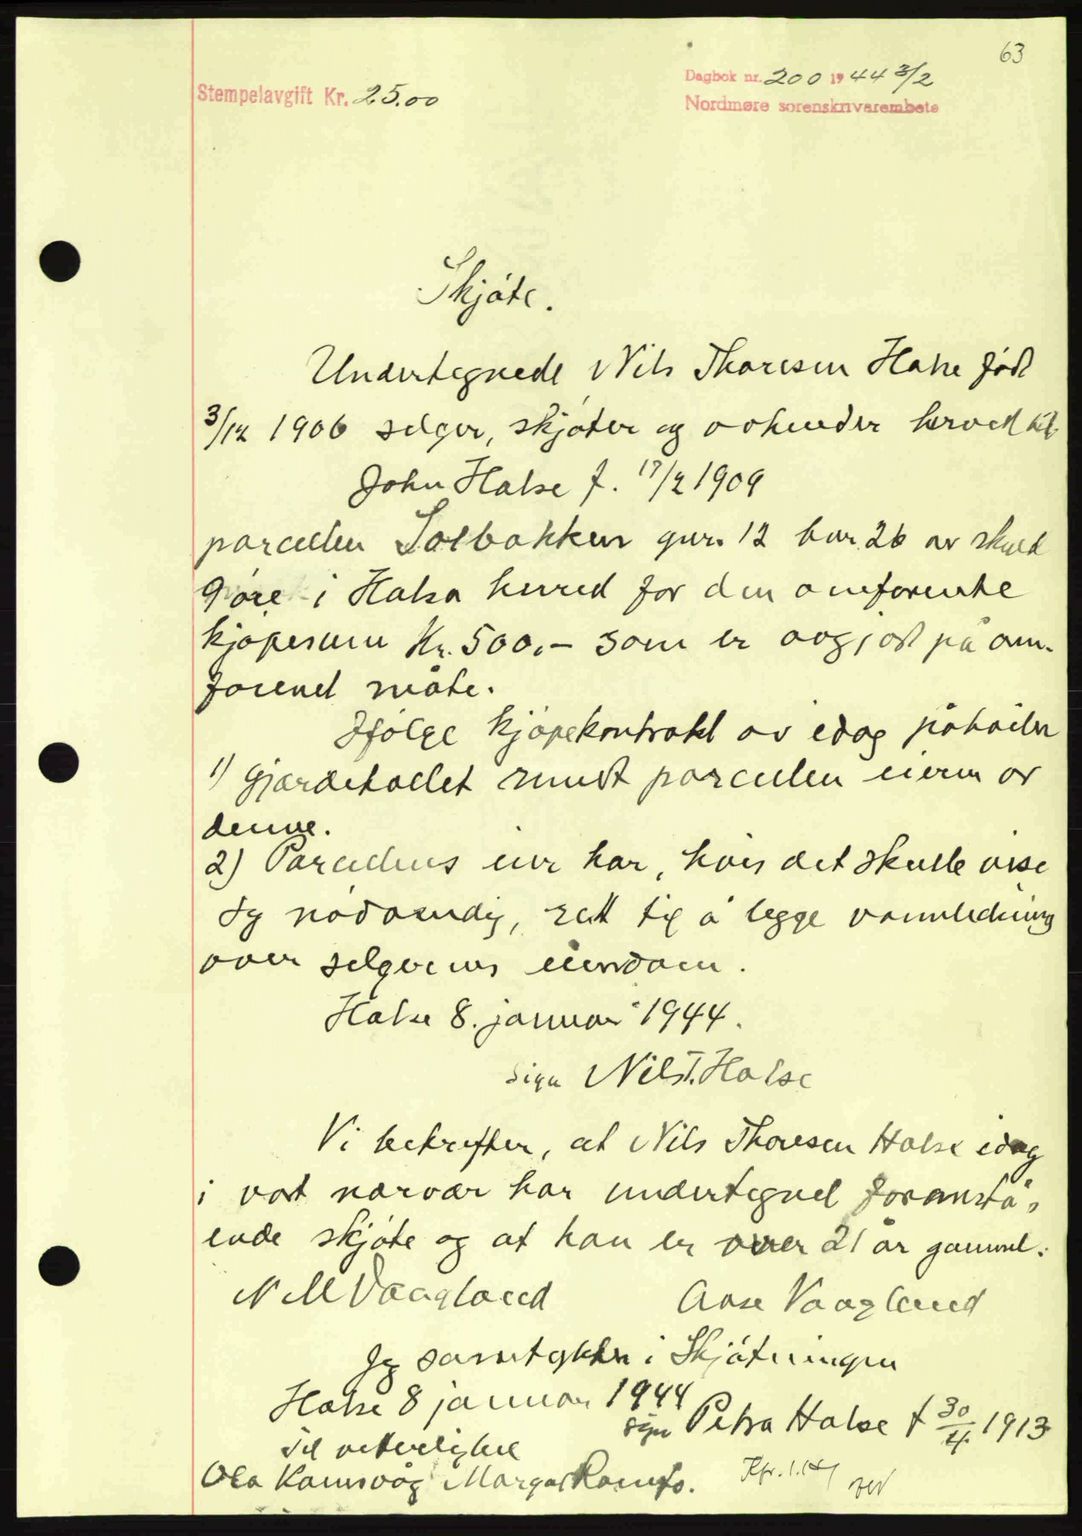 63
Stempelavgift Kr. 25.00
Dagbok nr. 200 1944 3/2
Nordmøre sorenskrivarembete
Skjöte.
Undertegnede Nils Thoresen Halse född
3/12 1906 selger, skjöter og avhender herved til
John Halse f. 17/2 1909
parcellen Solbakken gnr. 12 bnr. 26 av skyld
9 öre i Halsa herred for den omforente
kjöpesum Kr. 500,- som er avgjort på om-
forenet måte.
Ifölge kjöpekontrakt av idag påhviler
1) Gjærdeholdet rundt parcellen eieren av
denne.
2) Parcellens eier har, hvis det skulle vise
sig nödvendig, rett til å legge vannledning
over selgerens eiendom.
Halse 8. januar 1944.
sign Nils T. Halse
Vi bekrefter, at Nils Thoresen Halse idag
i vort nærvær har undertegnet foranstå-
ende skjöte og at han er over 21 år gammel.
N M Vaagland Aase Vaagland
Jeg samtykker i Skjötningen
Halse 8 januar 1944
sign Petra Halse f 30/4 1913
Til vitterlighet
Ola Kamsvåg Margar